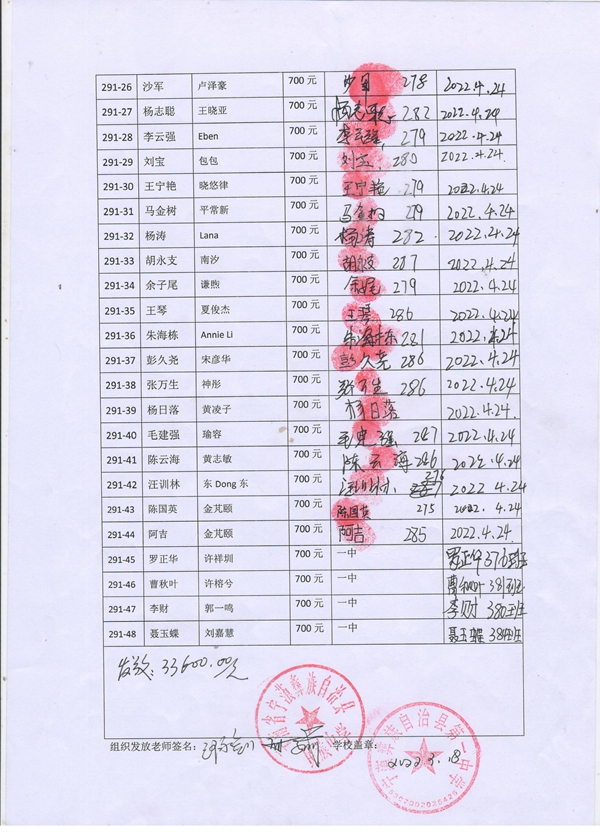 291-26 沙军 卢泽豪 700 元 沙军 278 2022.4.24
291-27 杨志聪 王晓亚 700 元 杨志聪 282 2022.4.24
291-28 李云强 Eben 700 元 李云强 279 2022.4.24
291-29 刘宝 包包 700 元 刘宝 280 2022.4.24
291-30 王宁艳 晓悠律 700 元 王宁艳 279 2022.4.24
291-31 马金树 平常新 700 元 马金树 279 2022.4.24
291-32 杨涛 Lana 700 元 杨涛 282 2022.4.24
291-33 胡永支 南汐 700 元 胡永支 287 2022.4.24
291-34 余子尾 谦煦 700 元 279 2022.4.24
291-35 王琴 夏俊杰 700 元 王琴 286 2022.4.24
291-36 朱海栋 Annie Li 700 元 朱海栋 281 2022.4.24
291-37 彭久尧 宋彦华 700 元 彭久尧 286 2022.4.24
291-38 张万生 神彤 700 元 张万生 286 2022.4.24
291-39 杨日落 黄凌子 700 元 杨日落 2022.4.24
291-40 毛建强 瑜容 700 元 毛建强 247 2022.4.24
291-41 陈云海 黄志敏 700 元 陈云海 246 2022.4.24
291-42 汪训林 东 Dong 东 700 元 汪训林 276 2022 4.24
291-43 陈国英 金芃颐 700 元 陈国英 275 2022. 4.24
291-44 阿吉 金芃颐 700 元 阿吉 285 2022.4.24
291-45 罗正华 许祥圳 700 元 一中 罗正华 376班
291-46 曹秋叶 许榕兮 700 元 一中 曹秋叶 381班
291-47 李财 郭一鸣 700 元 一中 李财 380班
291-48 聂玉蝶 刘嘉慧 700 元 一中 聂玉蝶 381班
发放：33600.00元
组织发放老师签名： 学校盖章： 2022.5.18